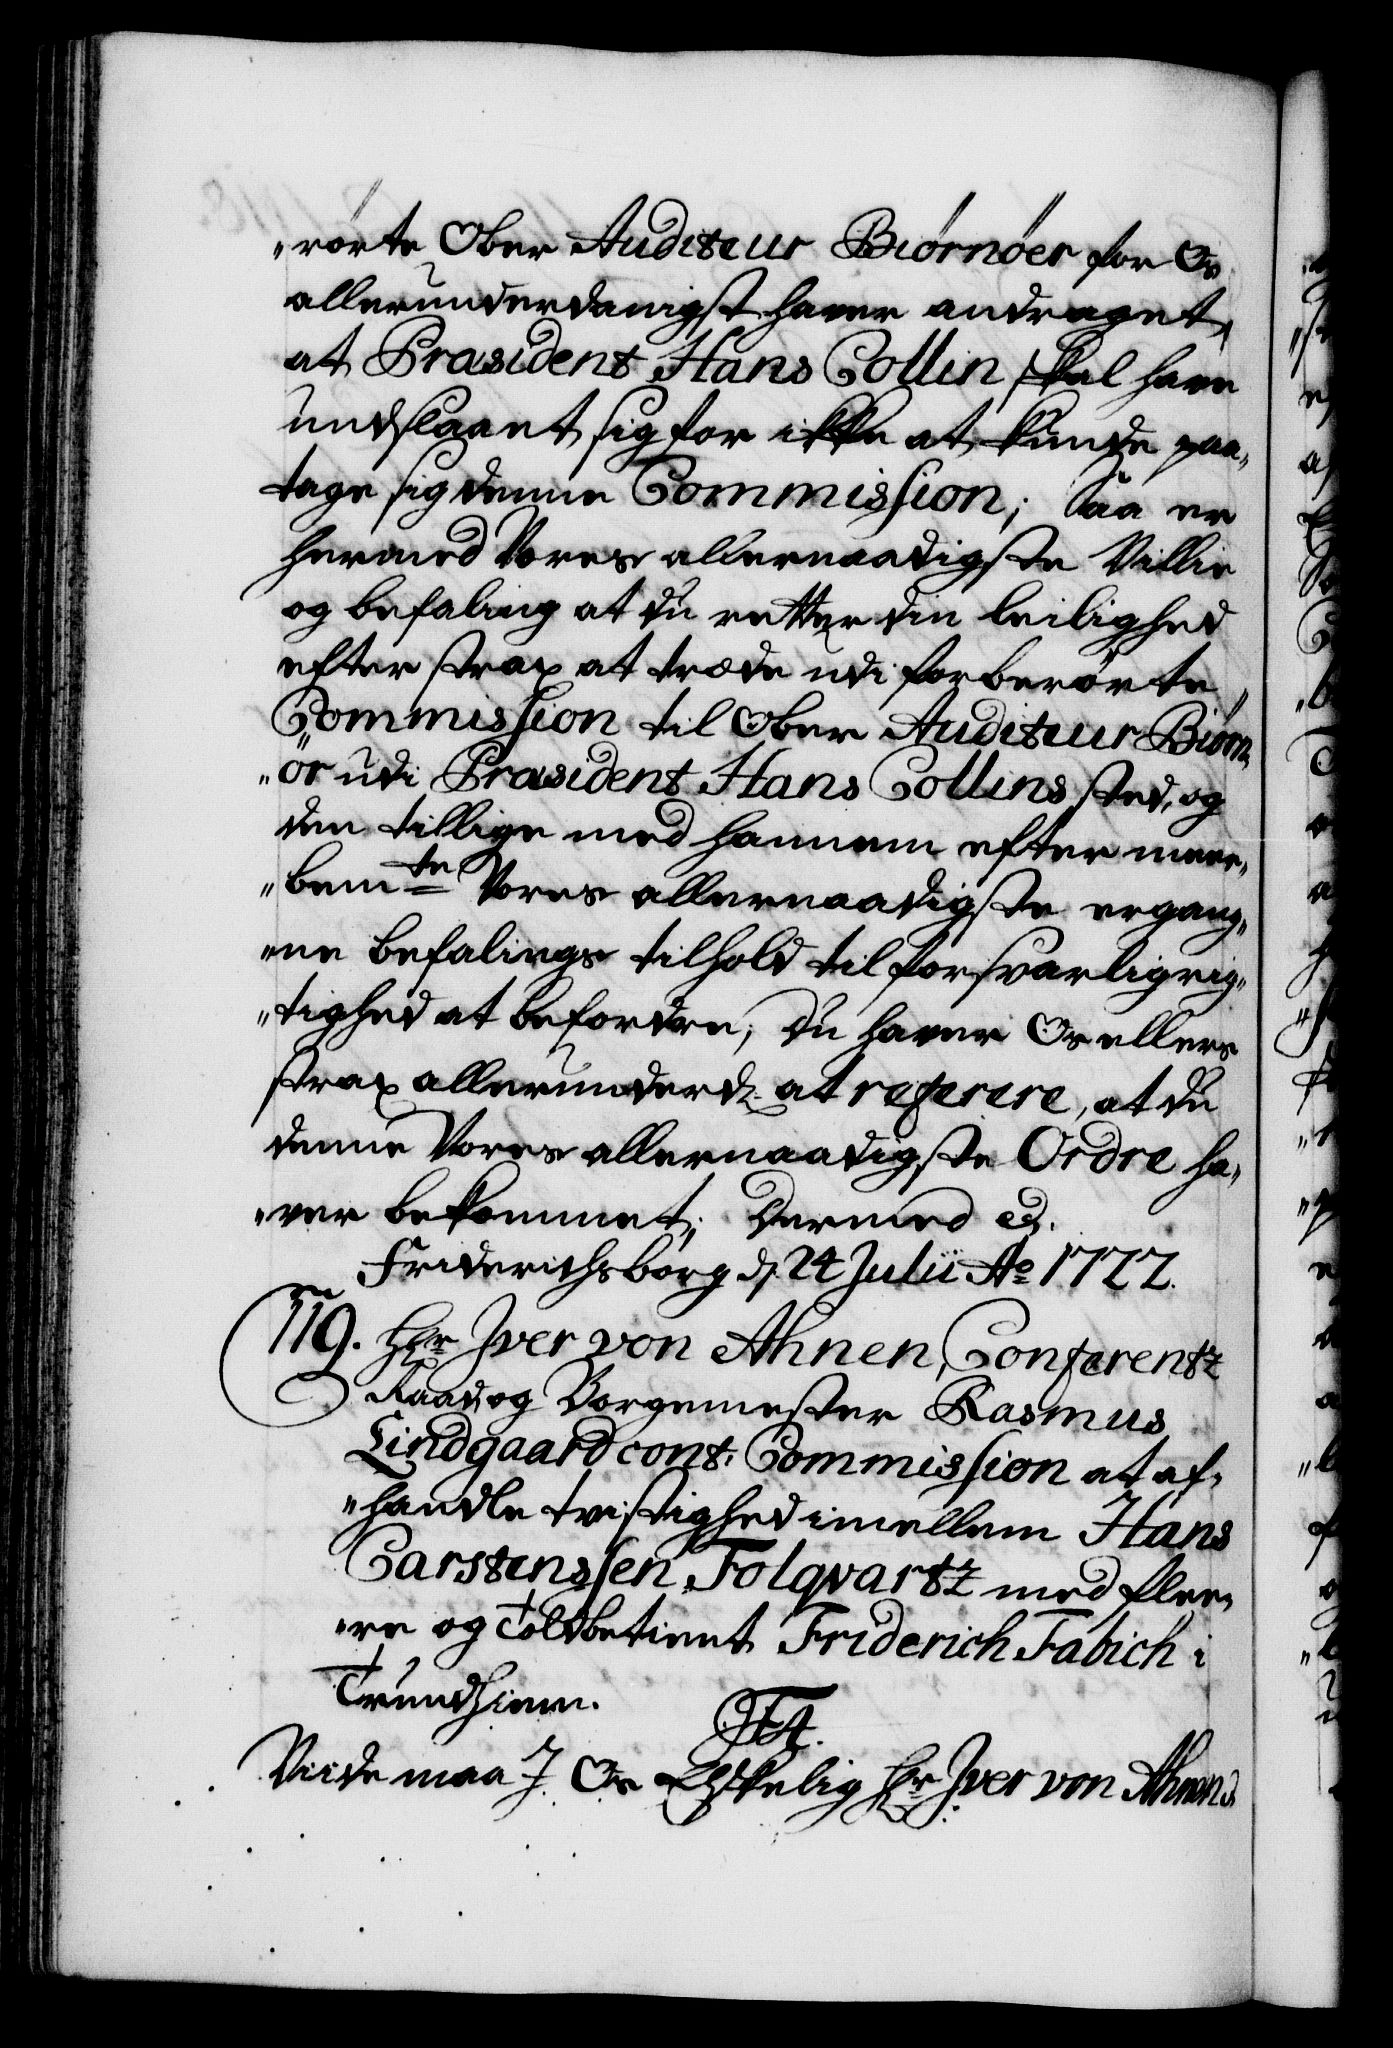 „rørte Ober Auditeur Biørnöer for Os
allerunderdanigst haver andraget,
at Præsident Hans Collin skal have
undslaaet sig for ikke at kunde paa„
tage sig denne Commission; Saa er
hermed Vores allernaadigste Villie
og befaling at du retter din leilighed
efter strax at træde udi forberørte
Commission til Ober Auditeur Biørn„
„ör udi Præsident Hans Collins sted, og
den tillige med hannem efter meer„
„bemte Vores allernaadigste ergang„
„ne befalings tilhold til forsvarlig rig„
„tighed at befordre; du haver Os ellers
strax allerunderd: at referere, at du
denne Vores allernaadigste Ordre ha„
„ver bekommet; Dermed &.
Friderichsborg d. 24 Julii Ao 1722.
119. Hr Iver von Ahnen, Conferentz
Raad, og Borgemester Rasmus
Lindgaard cont. Commission at af„
„handle tvistighed imellem Hans
Carstenssen, Folqvartz med flee„
„re og Toldbetient Friderich Fabich i
Trundhiem.
F4.
Viide maa I Os Elskelig Hr Iver von Ahnen